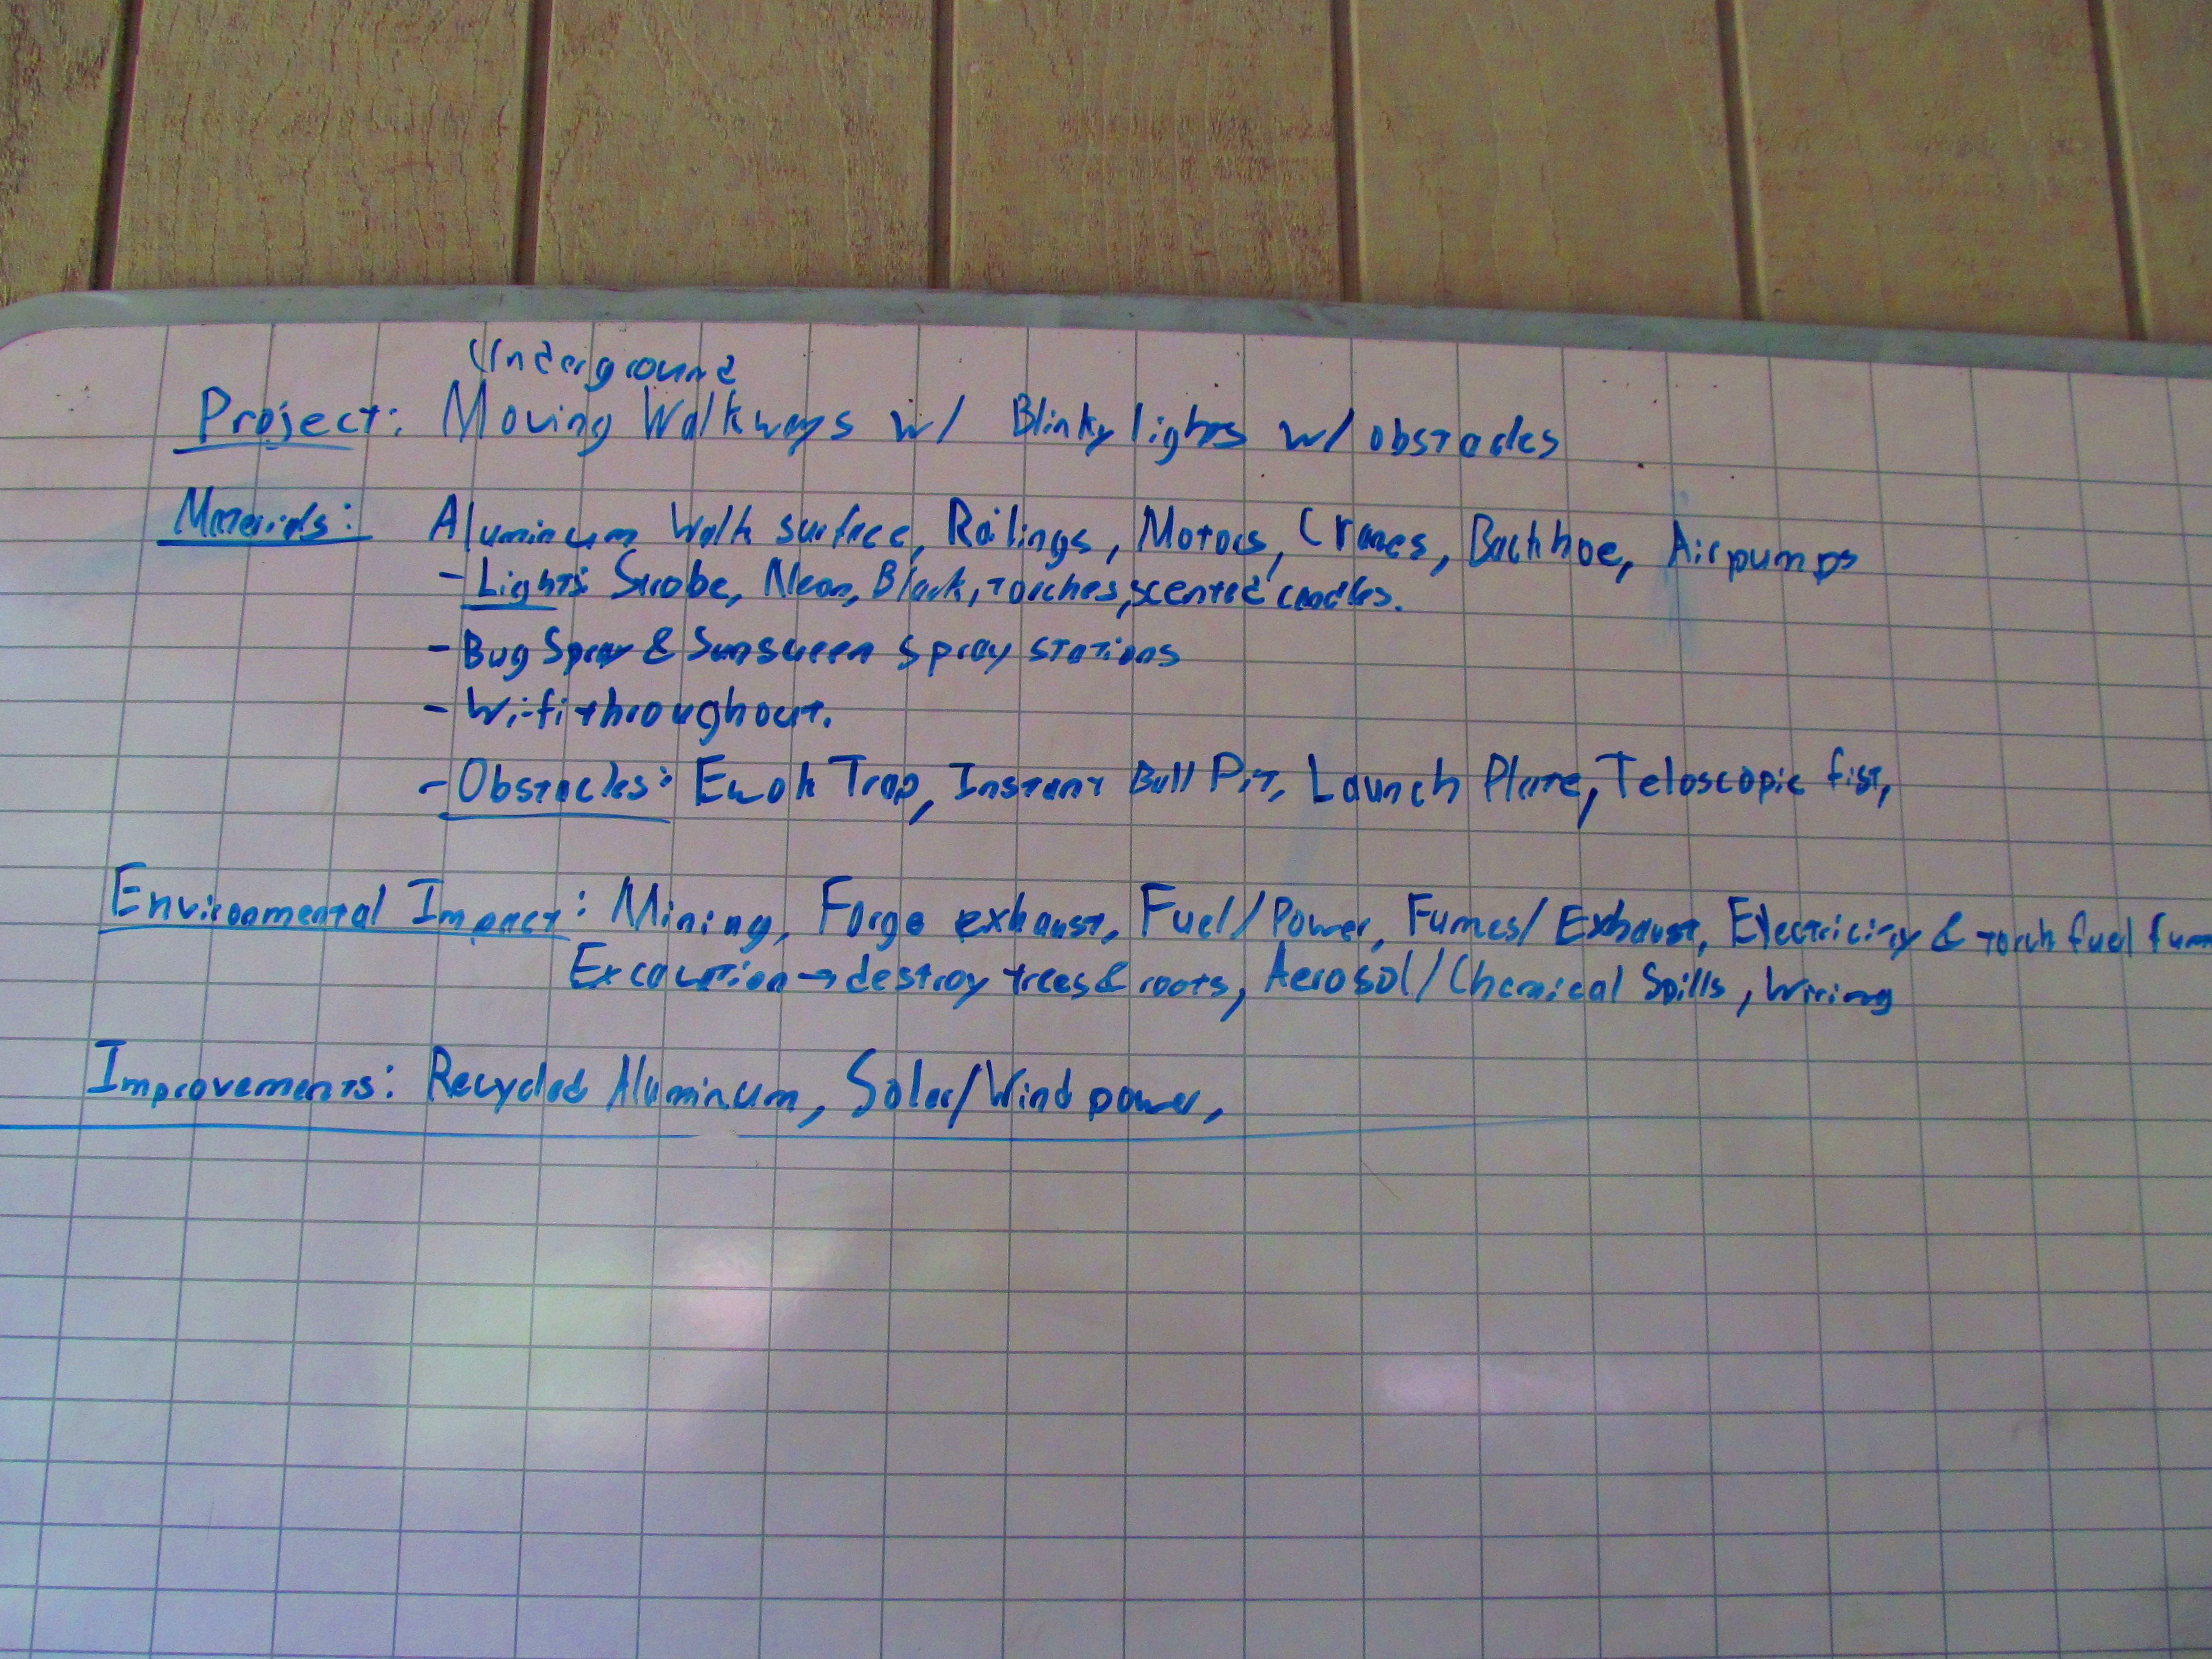 Underground
Project: Moving Walkways w/ Blinky lights w/ obstacles
Materials: Aluminum Walk surface, Railings, Motors, Cranes, Backhoe, Airpumps
- Lights: Strobe, Neon, Black, torches, scented candles.
- Bug Spray & Sunscreen spray stations
- Wi-fi throughout.
- Obstacles: Ewok Trap, Instant Ball Pit, Launch Plate, Teloscopic fist,
Environmental Impact: Mining, Forge exhaust, Fuel/Power, Fumes/Exhaust, Electricity & torch fuel fum
Excavation → destroy trees & roots, Aerosol/Chemical Spills, Wiring
Improvements: Recycled Aluminum, Solar/Wind power,